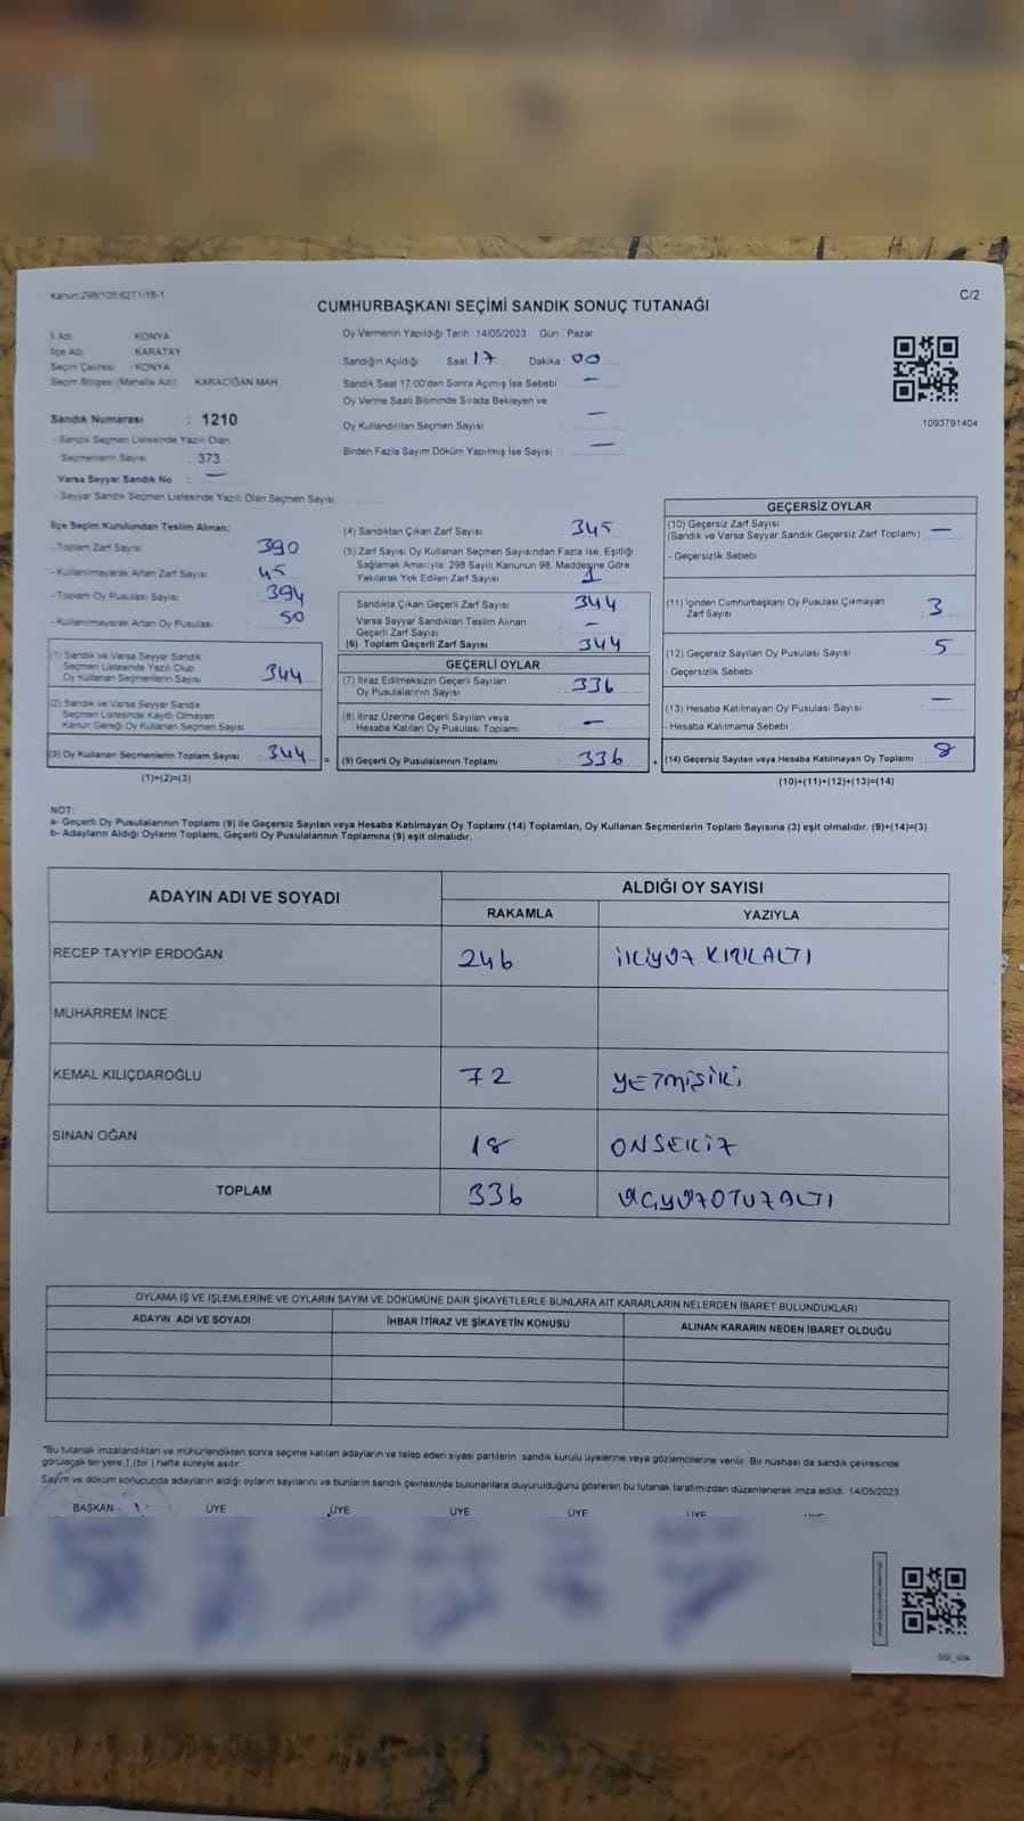 Kanun:298/105 6271/18-1
C/2
CUMHURBAŞKANI SEÇİMİ SANDIK SONUÇ TUTANAĞI
İl Adı : KONYA
İlçe Adı : KARATAY
Seçim Çevresi : KONYA
Seçim Bölgesi (Mahalle Adı) : KARACIĞAN MAH
Sandık Numarası : 1210
- Sandık Seçmen Listesinde Yazılı Olan
Seçmenlerin Sayısı : 373
Varsa Seyyar Sandık No : —
- Seyyar Sandık Seçmen Listesinde Yazılı Olan Seçmen Sayısı
Oy Vermenin Yapıldığı Tarih: 14/05/2023 Gün : Pazar
Sandığın Açıldığı Saat 17 Dakika 00
Sandık Saat 17.00'den Sonra Açılmış İse Sebebi —
Oy Verme Saati Bitiminde Sırada Bekleyen ve
Oy Kullandırılan Seçmen Sayısı —
Birden Fazla Sayım Döküm Yapılmış İse Sayısı : —
1093791404
İlçe Seçim Kurulundan Teslim Alınan:
- Toplam Zarf Sayısı 390
- Kullanılmayarak Artan Zarf Sayısı 45
- Toplam Oy Pusulası Sayısı 394
- Kullanılmayarak Artan Oy Pusulası 50
(1) Sandık ve Varsa Seyyar Sandık
Seçmen Listesinde Yazılı Olup
Oy Kullanan Seçmenlerin Sayısı 344
(2) Sandık ve Varsa Seyyar Sandık
Seçmen Listesinde Kayıtlı Olmayan
Kanun Gereği Oy Kullanan Seçmen Sayısı
(3) Oy Kullanan Seçmenlerin Toplam Sayısı 344
(1)+(2)=(3)
(4) Sandıktan Çıkan Zarf Sayısı 345
(5) Zarf Sayısı Oy Kullanan Seçmen Sayısından Fazla İse, Eşitliği
Sağlamak Amacıyla; 298 Sayılı Kanunun 98. Maddesine Göre
Yakılarak Yok Edilen Zarf Sayısı 1
Sandıkta Çıkan Geçerli Zarf Sayısı 344
Varsa Seyyar Sandıktan Teslim Alınan
Geçerli Zarf Sayısı —
(6) Toplam Geçerli Zarf Sayısı 344
GEÇERLİ OYLAR
(7) İtiraz Edilmeksizin Geçerli Sayılan
Oy Pusulalarının Sayısı 336
(8) İtiraz Üzerine Geçerli Sayılan veya
Hesaba Katılan Oy Pusulası Toplamı —
= (9) Geçerli Oy Pusulalarının Toplamı 336
GEÇERSİZ OYLAR
(10) Geçersiz Zarf Sayısı
(Sandık ve Varsa Seyyar Sandık Geçersiz Zarf Toplamı) —
- Geçersizlik Sebebi
(11) İçinden Cumhurbaşkanı Oy Pusulası Çıkmayan
Zarf Sayısı 3
(12) Geçersiz Sayılan Oy Pusulası Sayısı 5
- Geçersizlik Sebebi
(13) Hesaba Katılmayan Oy Pusulası Sayısı —
- Hesaba Katılmama Sebebi
+ (14) Geçersiz Sayılan veya Hesaba Katılmayan Oy Toplamı 8
(10)+(11)+(12)+(13)=(14)
NOT:
a- Geçerli Oy Pusulalarının Toplamı (9) ile Geçersiz Sayılan veya Hesaba Katılmayan Oy Toplamı (14) Toplamları, Oy Kullanan Seçmenlerin Toplam Sayısına (3) eşit olmalıdır. (9)+(14)=(3)
b- Adayların Aldığı Oyların Toplamı, Geçerli Oy Pusulalarının Toplamına (9) eşit olmalıdır.
ADAYIN ADI VE SOYADI ALDIĞI OY SAYISI
RAKAMLA YAZIYLA
RECEP TAYYİP ERDOĞAN 246 İKİYÜZ KIRKALTI
MUHARREM İNCE
KEMAL KILIÇDAROĞLU 72 YETMİŞİKİ
SİNAN OĞAN 18 ONSEKİZ
TOPLAM 336 ÜÇYÜZOTUZALTI
OYLAMA İŞ VE İŞLEMLERİNE VE OYLARIN SAYIM VE DÖKÜMÜNE DAİR ŞİKAYETLERLE BUNLARA AİT KARARLARIN NELERDEN İBARET BULUNDUKLARI
ADAYIN ADI VE SOYADI İHBAR İTİRAZ VE ŞİKAYETİN KONUSU ALINAN KARARIN NEDEN İBARET OLDUĞU
*Bu tutanak imzalandıktan ve mühürlendikten sonra seçime katılan adayların ve talep eden siyasi partilerin sandık kurulu üyelerine veya gözlemcilerine verilir. Bir nüshası da sandık çevresinde
görülecek bir yere 1 (bir) hafta süreyle asılır
Sayım ve döküm sonucunda adayların aldığı oyların sayılarını ve bunların sandık çevresinde bulunanlara duyurulduğunu gösteren bu tutanak tarafımızdan düzenlenerek imza edildi. 14/05/2023
BAŞKAN ÜYE ÜYE ÜYE ÜYE ÜYE